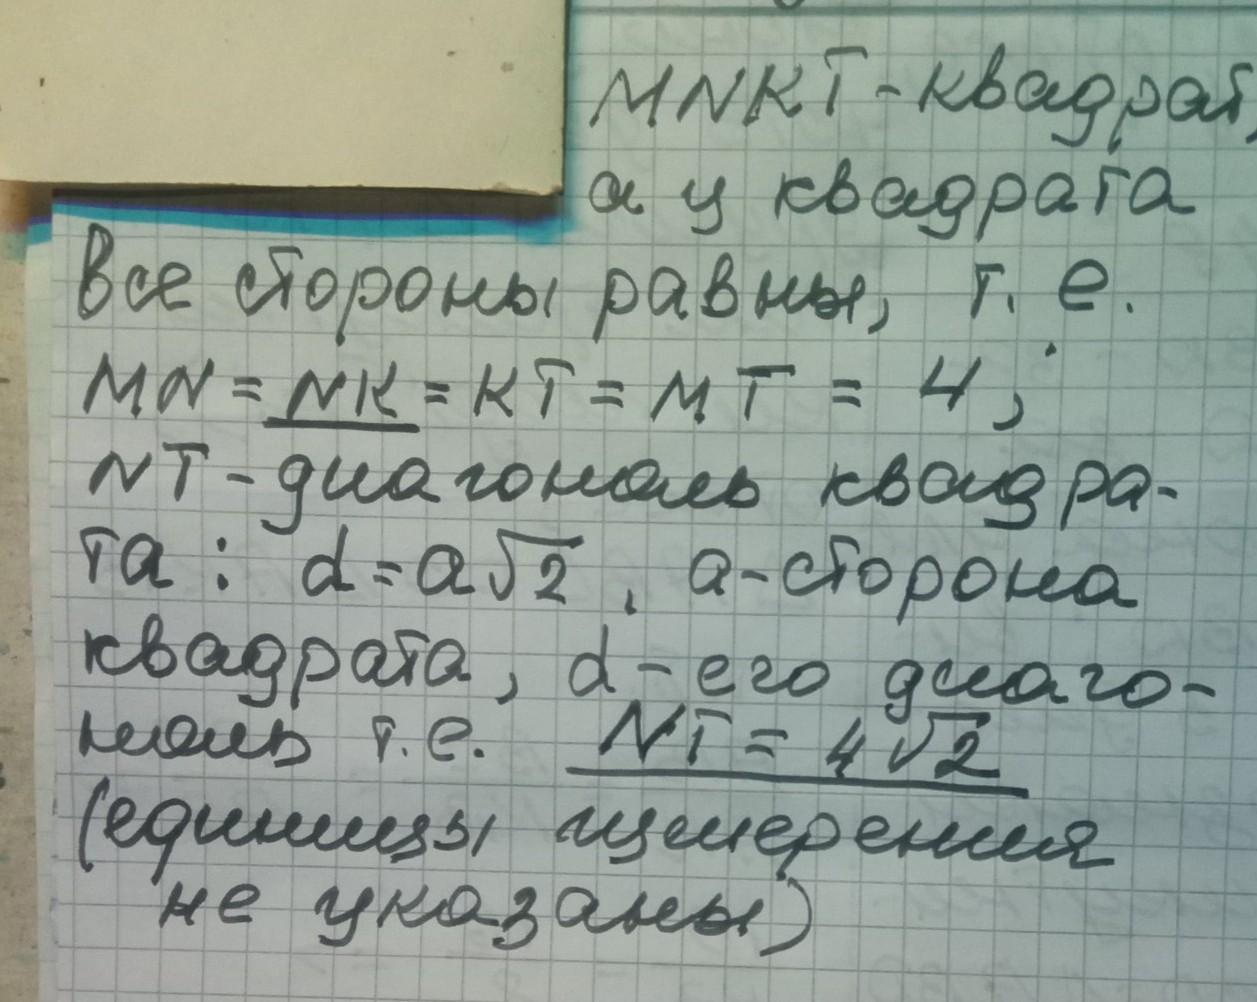 MNKT - квадрат,
а у квадрата
все стороны равны, т. е.
MN = NK = KT = MT = 4 ;
NT - диагональ квадра-
та : d = a√2 , a - сторона
квадрата, d - его диаго-
наль т.е. NT = 4√2
(единицы измерения
не указаны)